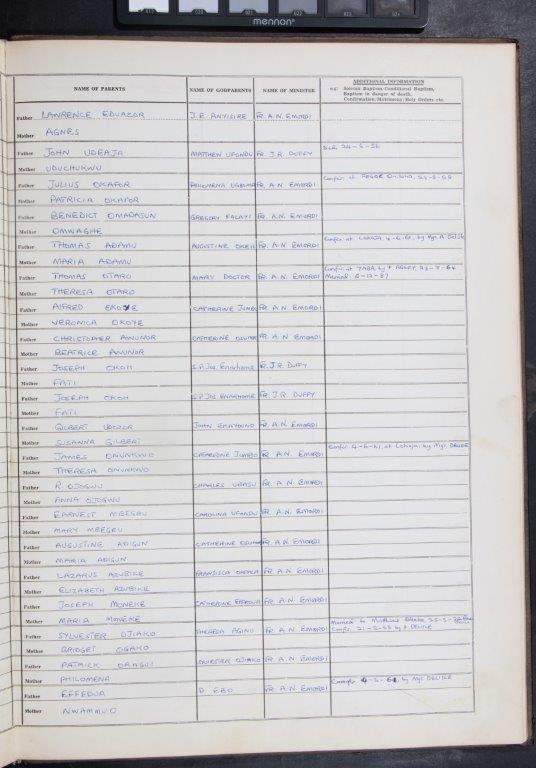 mennon
NAME OF PARENTS NAME OF GODPARENTS NAME OF MINISTER ADDITIONAL INFORMATION
e.g: Solemn Baptism, Conditional Baptism,
Baptism in danger of death,
Confirmation/Matrimony/Holy Orders etc.
Father LAWRENCE EDUAZOR J.E. ANYISIRE FR. A.N. EMORDI
Mother AGNES
Father JOHN UDEAJA MATTHEW UFONDU FR. J.R. DUFFY
Mother UDUCHUKWU
Father JULIUS OKAFOR PHILOMENA FR. A.N. EMORDI
Mother PATRICIA OKAFOR
Father BENEDICT OMADASUN GREGORY FALAYI FR. A.N. EMORDI
Mother OMWAGHE
Father THOMAS ADAMU AUGUSTINE OKEH FR. A.N. EMORDI Confir. at Lokoja, 4-6-61, by Mgr. A. Delisle
Mother MARIA ADAMU
Father THOMAS OTARO MARY DOCTOR FR. A.N. EMORDI Confir. at YABA, by
Married 6-12-87
Mother THERESA OTARO
Father ALFRED OKOYE CATHERINE JUMBO FR. A.N. EMORDI
Mother VERONICA OKOYE
Father CHRISTOPHER AWUNOR CATHERINE FR. A.N. EMORDI
Mother BEATRICE AWUNOR
Father JOSEPH OKOH S.P. Jos. FR. J.R. DUFFY
Mother FATI
Father JOSEPH OKOH S.P. Jos. FR. J.R. DUFFY
Mother FATI
Father GILBERT UDOZOR JOHN FR. A.N. EMORDI
Mother SUSANNA GILBERT
Father JAMES ONUNKWO CATHERINE JUMBO FR. A.N. EMORDI Confir. 4-6-61, at Lokoja, by Mgr. DELISLE
Mother THERESA ONUNKWO
Father R. OJOGWU CHARLES UBASU FR. A.N. EMORDI
Mother ANNA OJOGWU
Father EARNEST MBEGBU CAROLINA UFONDU FR. A.N. EMORDI
Mother MARY MBEGBU
Father AUGUSTINE ADIGUN CATHERINE FR. A.N. EMORDI
Mother MARIA ADIGUN
Father LAZARUS AZUBIKE FRANCISCA FR. A.N. EMORDI
Mother ELIZABETH AZUBIKE
Father JOSEPH MONEKE CATHERINE FR. A.N. EMORDI
Mother MARIA MONEKE
Father SYLVESTER OJIAKO THERESA AGINU FR. A.N. EMORDI Married to
Confir. by DELISLE
Mother BRIDGET OGAKO
Father PATRICK SYLVESTER OJIAKO FR. A.N. EMORDI
Mother PHILOMENA
Father EFFEDUA D. EBO FR. A.N. EMORDI Confir. 4-6-61, by Mgr. DELISLE
Mother NWAMMUO